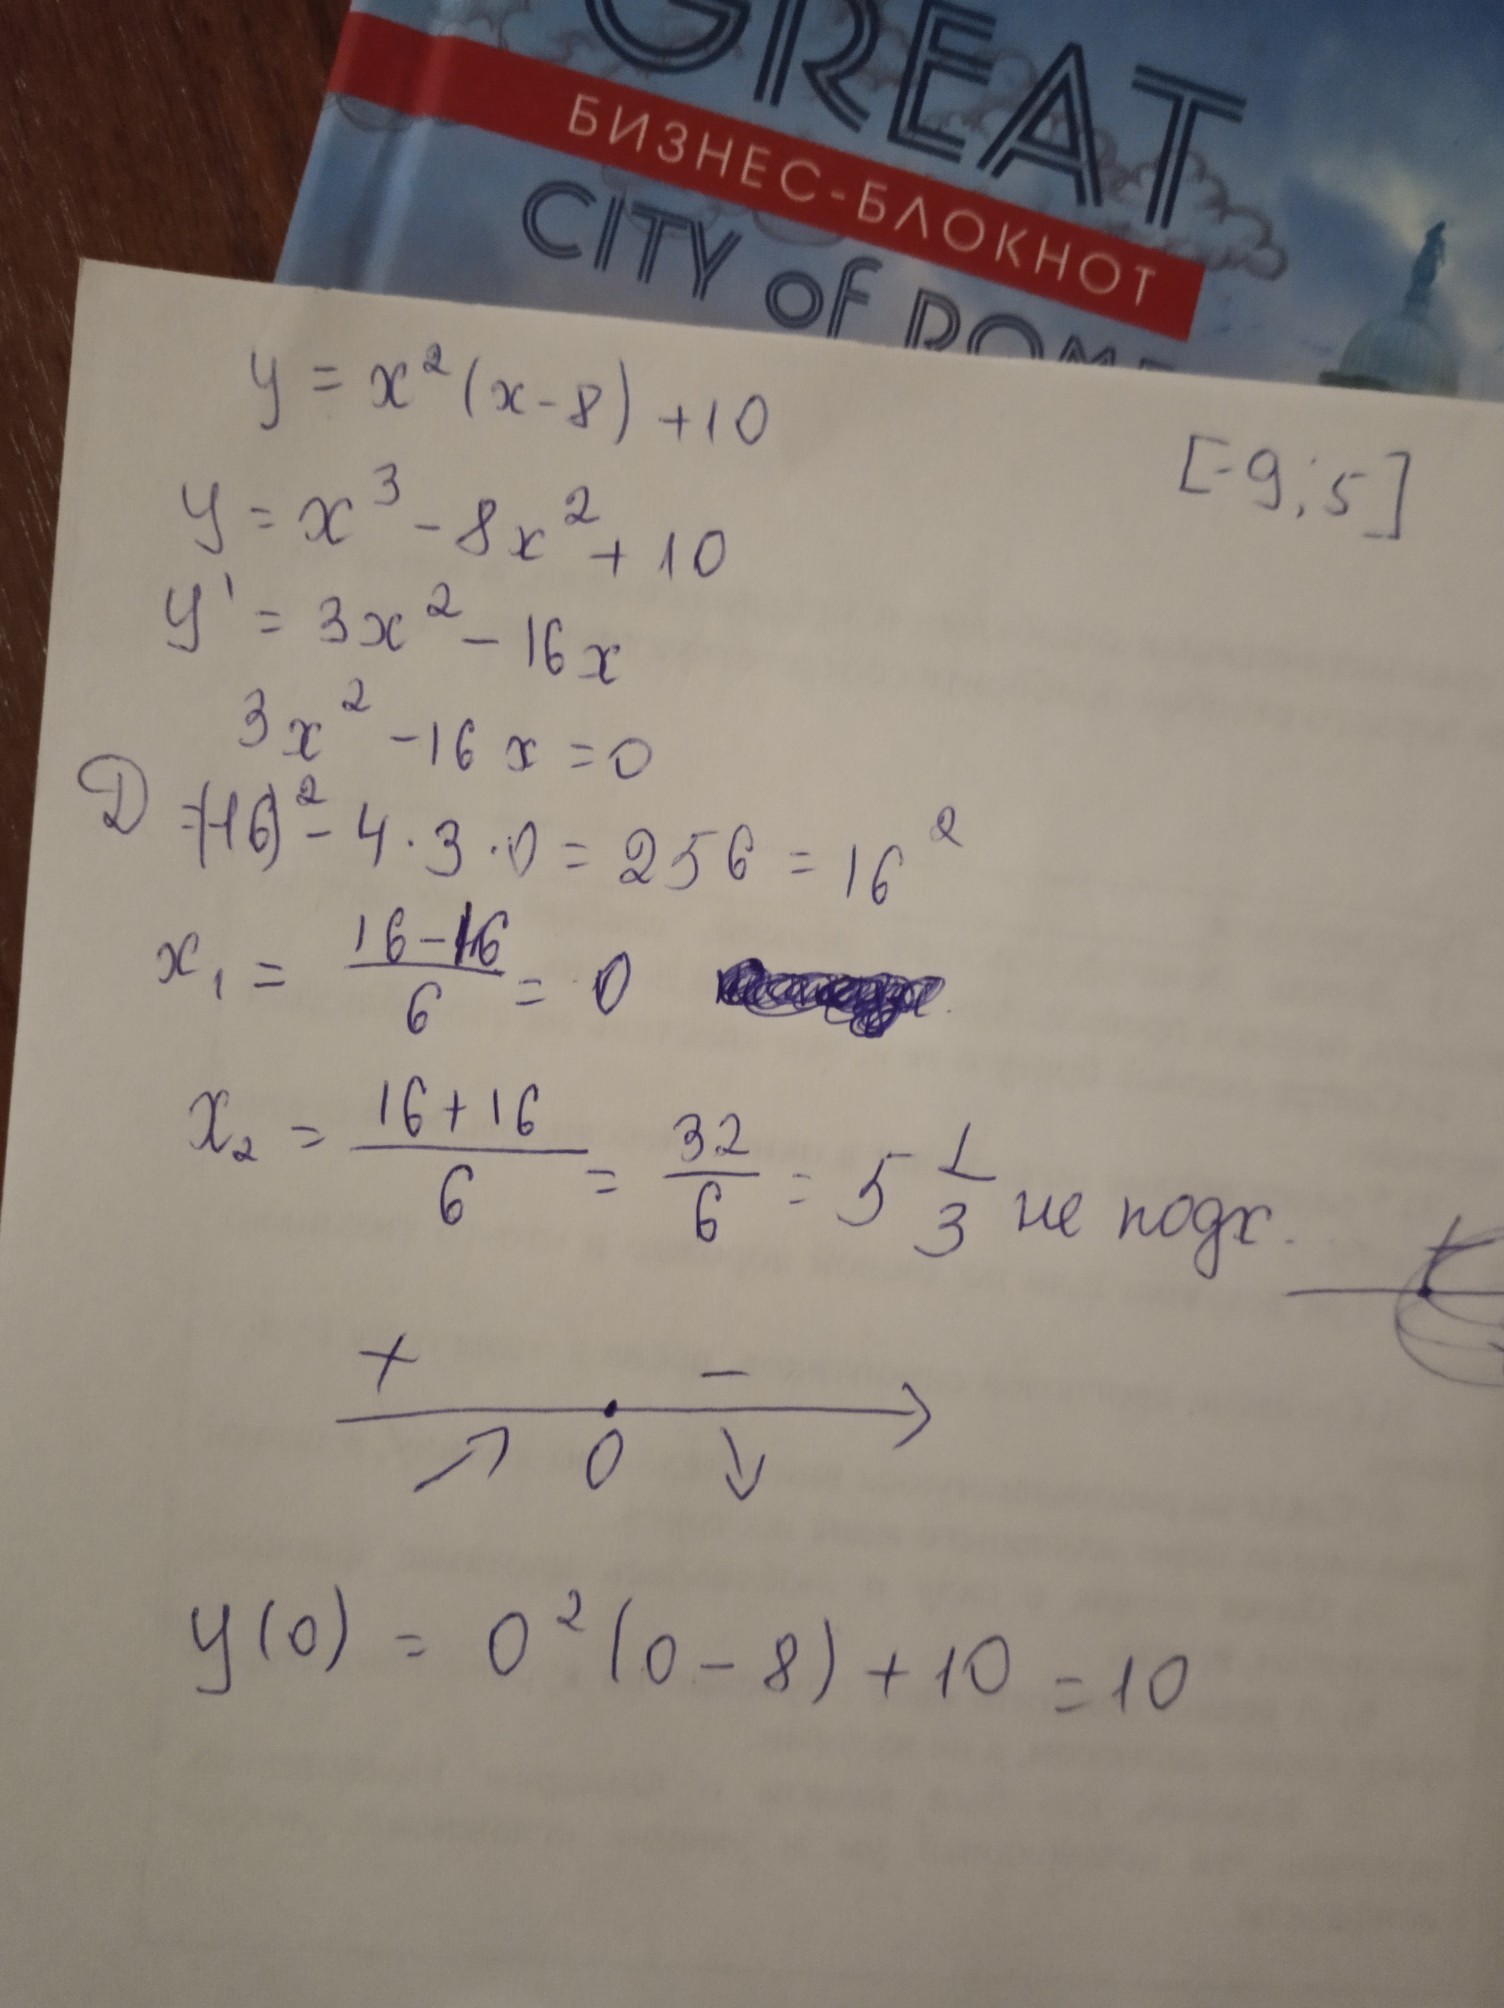 GREAT
БИЗНЕС-БЛОКНОТ
CITY of ROME
y = x²(x-8)+10
[-9;5]
y = x³-8x²+10
y' = 3x²-16x
3x²-16x=0
D =(-16)²-4·3·0=256=16²
x₁ = \frac{16-16}{6} = 0
x₂ = \frac{16+16}{6} = \frac{32}{6} = 5\frac{1}{3} не подх.
+ -
0
y(0) = 0²(0-8)+10=10